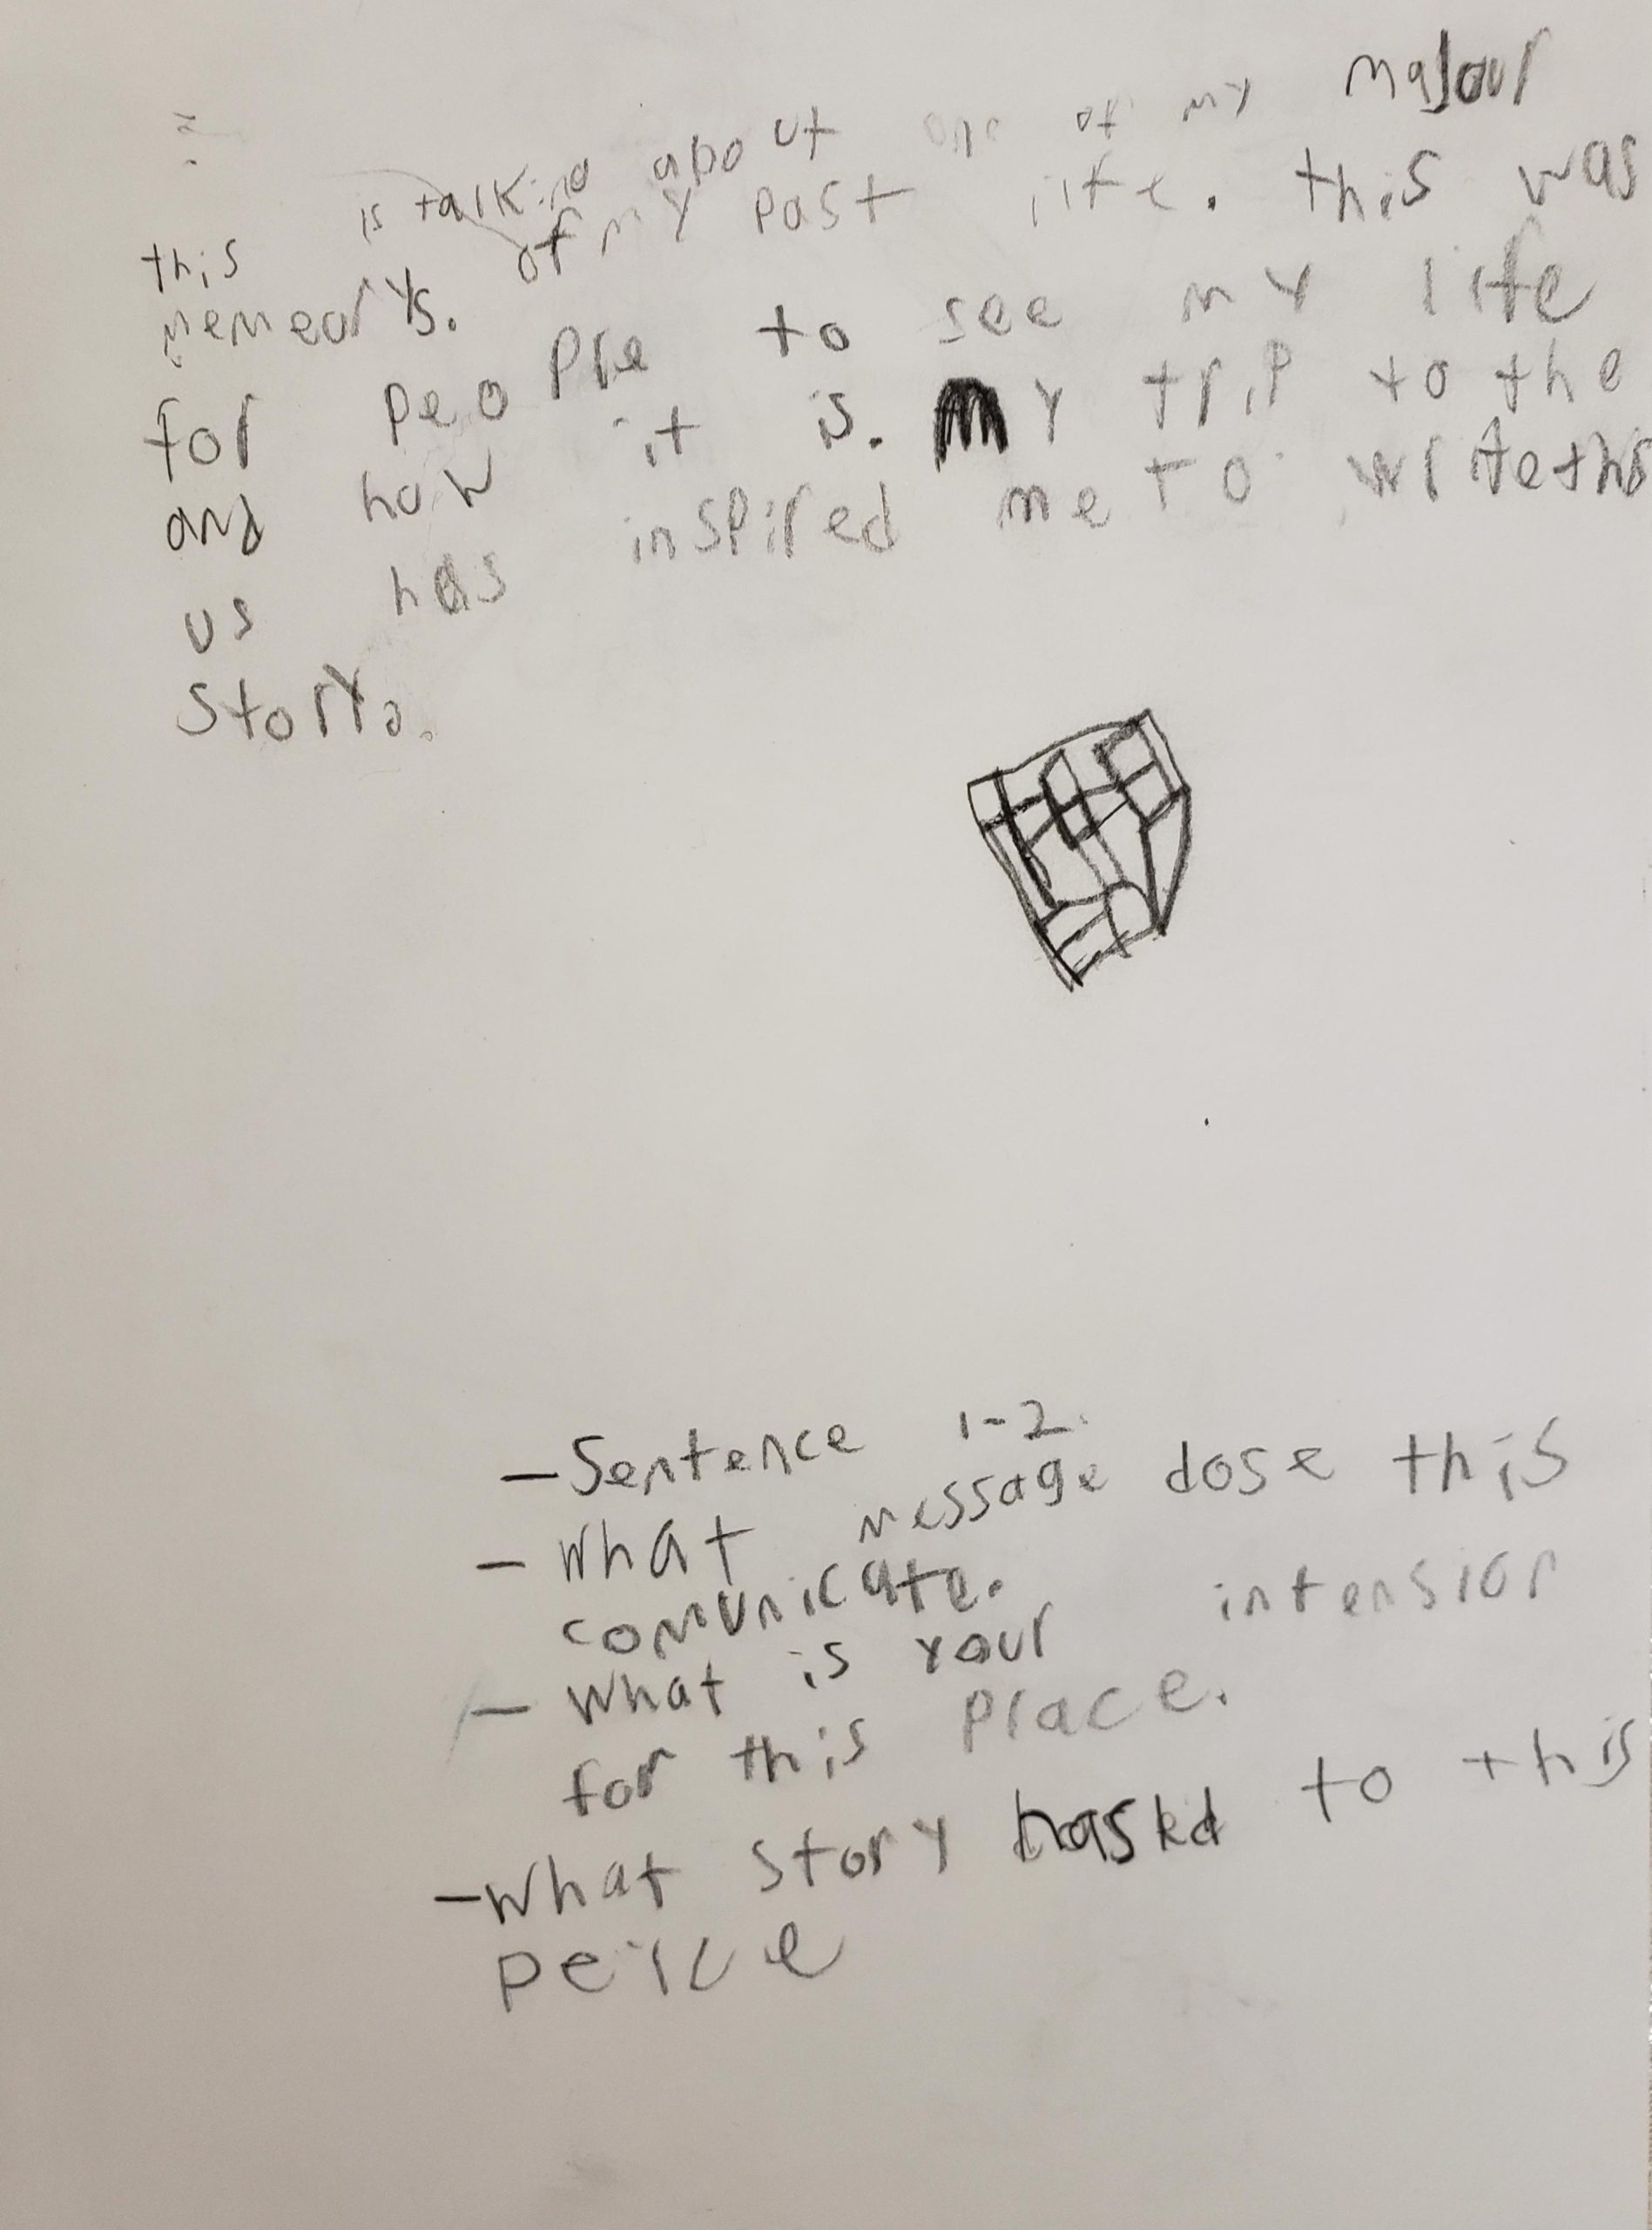 this is talking about one of my majour
memearys. of my past life. this was
for people to see my life
and how it is. My trip to the
us has inspired me to write this
story.
- Sentence 1-2.
- What message dose this
comunicate.
- What is your intension
for this place.
- What story to this
peice